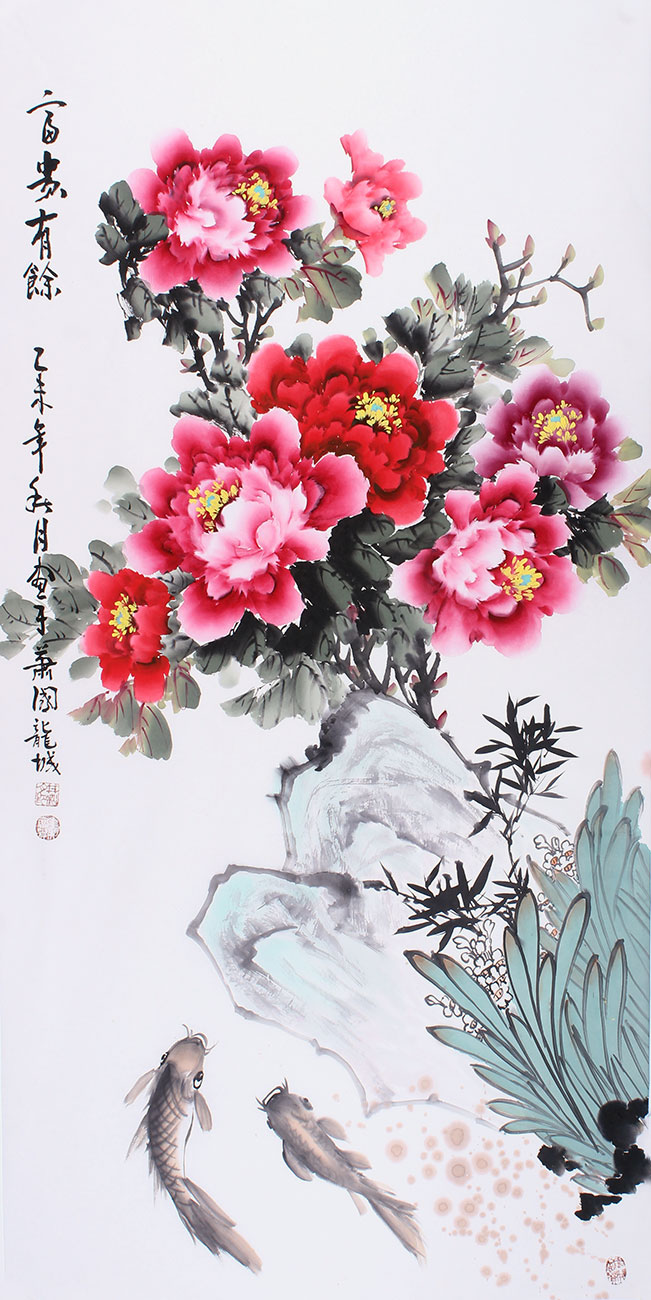 富贵有餘
乙未年秋月画于萧國龍城